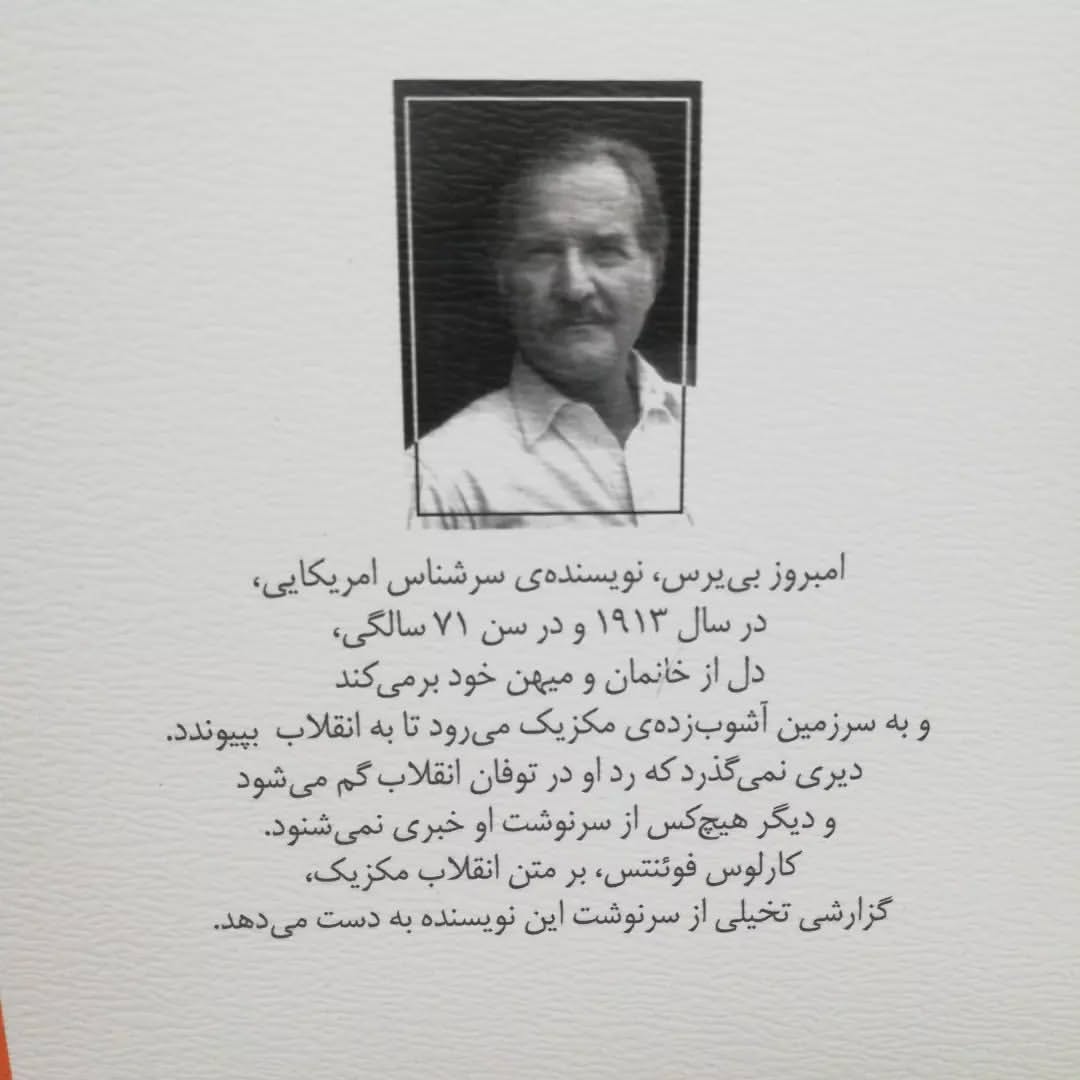 امبروز بی‌یرس، نویسنده‌ی سرشناس امریکایی،
در سال ۱۹۱۳ و در سن ۷۱ سالگی،
دل از خانمان و میهن خود برمی‌کند
و به سرزمین آشوب‌زده‌ی مکزیک می‌رود تا به انقلاب بپیوندد.
دیری نمی‌گذرد که رد او در توفان انقلاب گم می‌شود
و دیگر هیچ‌کس از سرنوشت او خبری نمی‌شنود.
کارلوس فوئنتس، بر متن انقلاب مکزیک،
گزارشی تخیلی از سرنوشت این نویسنده به دست می‌دهد.